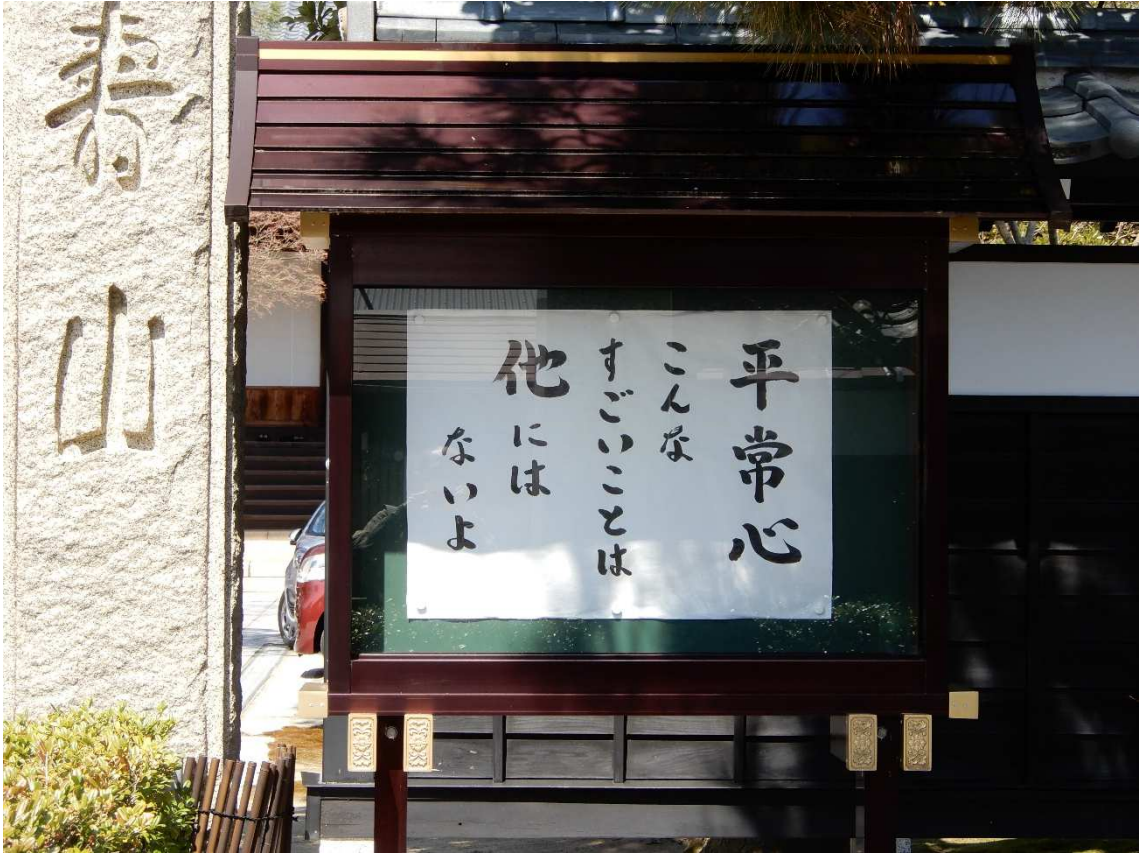 平常心
こんな
すごいことは
他には
ないよ
壽山